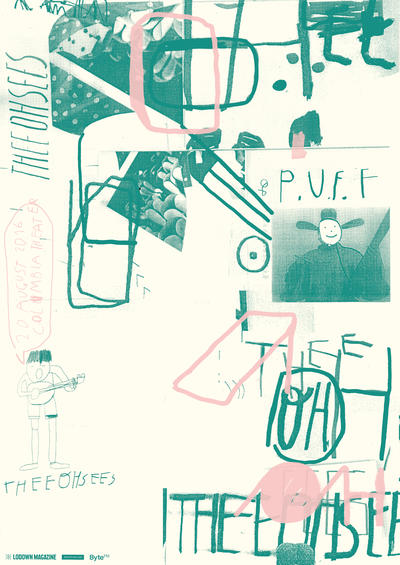 THEE OHSEES
P.U.F.F
20 AUGUST 2016
COLUMBIA THEATER
THEE
OH
THEE OHSEES
THEE OHSEES
LODOWN MAGAZINE
Byte FM